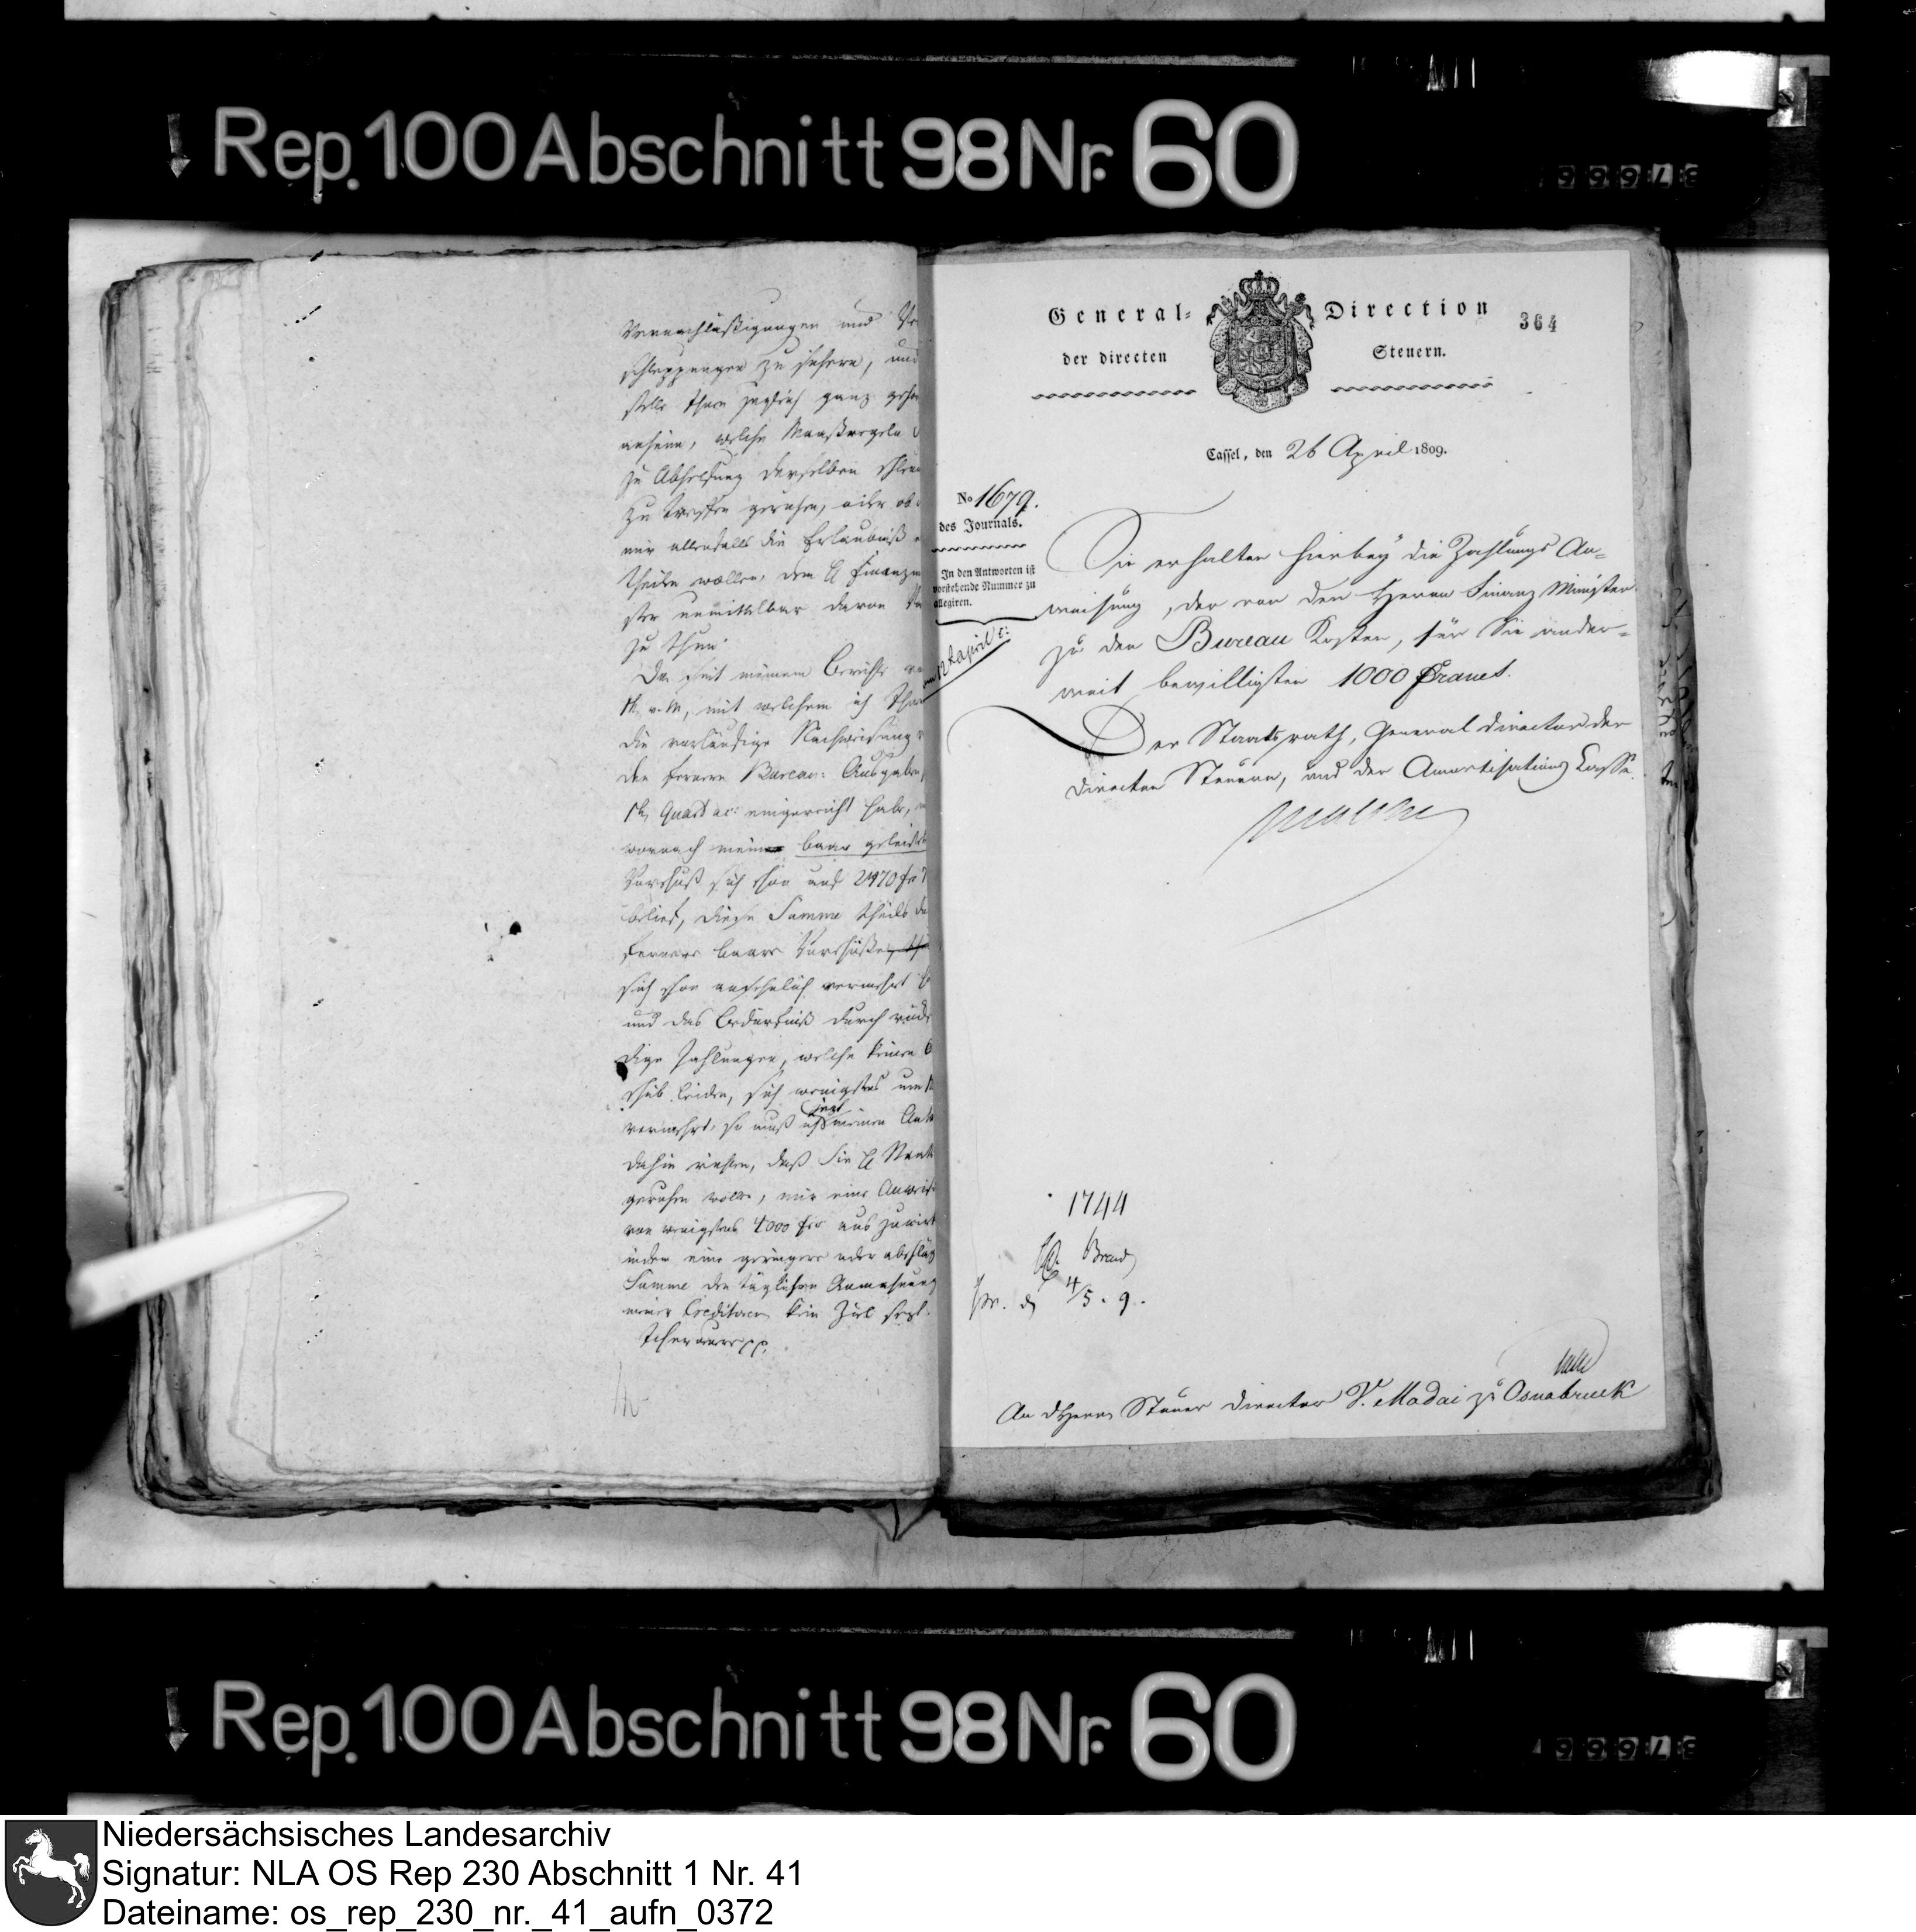 Rep. 100 Abschnitt 98 Nr. 60
Vernachläßigungen und Ver
schleppungen zu sichern, und
stelle Ihnen zugleich ganz geho
anheim, welche Maaßregeln
zu Abhelfung derselben
zu treffen geruhen, oder ob
mir allenfalls die Erlaubniß
theilen wollen, dem H Finanzm
ster unmittelbar davon
zu thun
Da seit meinem Bericht
v. M, mit welchem ich Ihnen
die vorläufige Nachweisung
der ferneren Bureau: Ausgaben
Quart ac: eingereicht habe,
wornach mein baar geleistet
Vorschuß sich schon auf 2470 fr
belief, diese Summe theils
fernere baare Vorschüße
sich schon ansehnlich vermehrt
und das Bedürfniß durch
dige Zahlungen, welche keinen
schub leiden, sich wenigstens um
vermehrt, so muß ich jezt meinen Ant
dahin richten, daß Sie H Staat
geruhen wollen, mir eine Anweis
von wenigstens 4000 frs aus
indem eine geringere oder abschläg
Summe den täglichen Anmahnung
meiner Creditoren kein Ziel sezt.
General- Direction
der directen Steuern.
364
Cassel, den 26 April 1809.
No 1679.
des Journals.
In den Antworten ist
vorstehende Nummer zu
allegiren.
12 April c:
Sie erhalten hierbey die Zahlungs An-
weisung, der von dem Herrn Finanz Minister
zu den Bureau Kosten, für Sie ander-
weit bewilligten 1000 Francs.
Der Staatsrath, General Director der
directen Steuern, und der Amortisations Casse.
Malchus
1744
Pr. d 4/5. 9.
An d Herrn Steuer Director V. Madai zu Osnabrueck
Rep. 100 Abschnitt 98 Nr. 60
Niedersächsisches Landesarchiv
Signatur: NLA OS Rep 230 Abschnitt 1 Nr. 41
Dateiname: os_rep_230_nr._41_aufn_0372